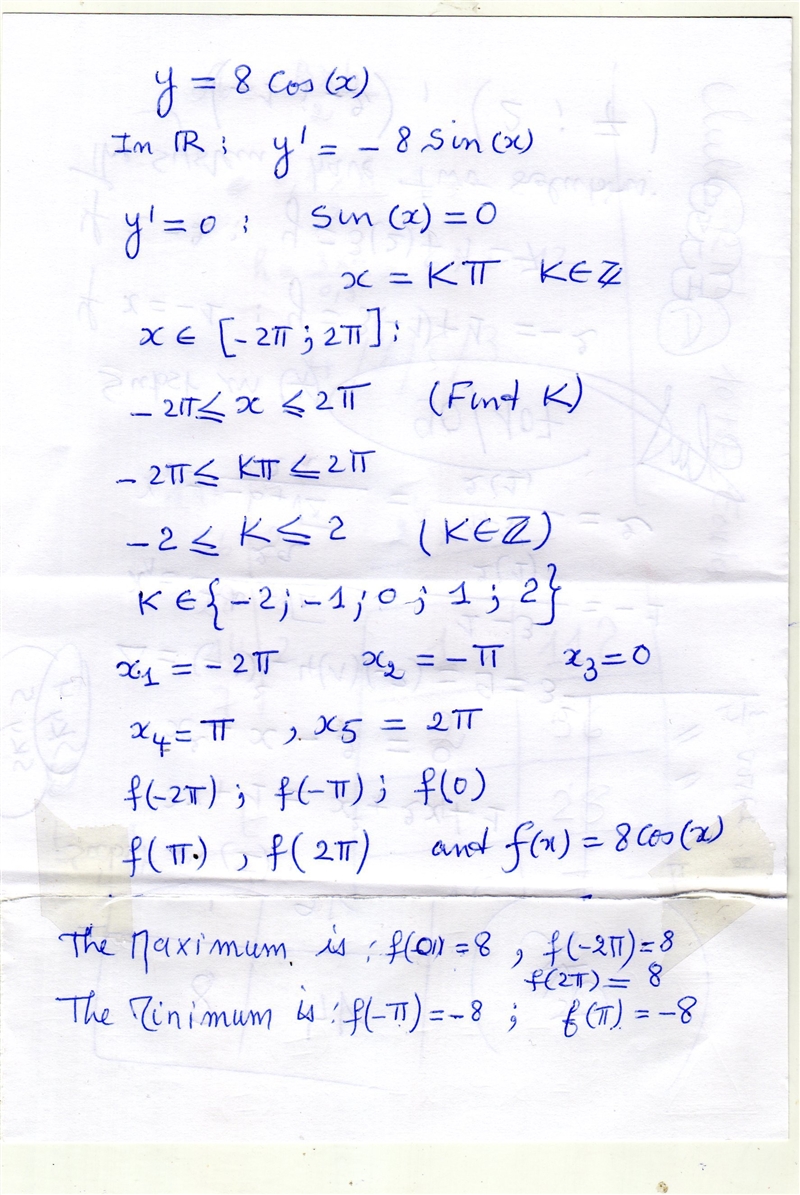 y = 8 Cos(x)
In ℝ : y' = - 8 Sin(x)
y' = 0 : Sin(x) = 0
x = Kπ K∈ℤ
x ∈ [-2π ; 2π] :
-2π ⩽ x ⩽ 2π (Find K)
-2π ⩽ Kπ ⩽ 2π
-2 ⩽ K ⩽ 2 (K∈ℤ)
K ∈ {-2 ; -1 ; 0 ; 1 ; 2}
x₁ = -2π x₂ = -π x₃ = 0
x₄ = π , x₅ = 2π
f(-2π) ; f(-π) ; f(0)
f(π) , f(2π) and f(x) = 8 Cos(x)
The Maximum is : f(0) = 8 , f(-2π) = 8
f(2π) = 8
The Minimum is : f(-π) = -8 ; f(π) = -8